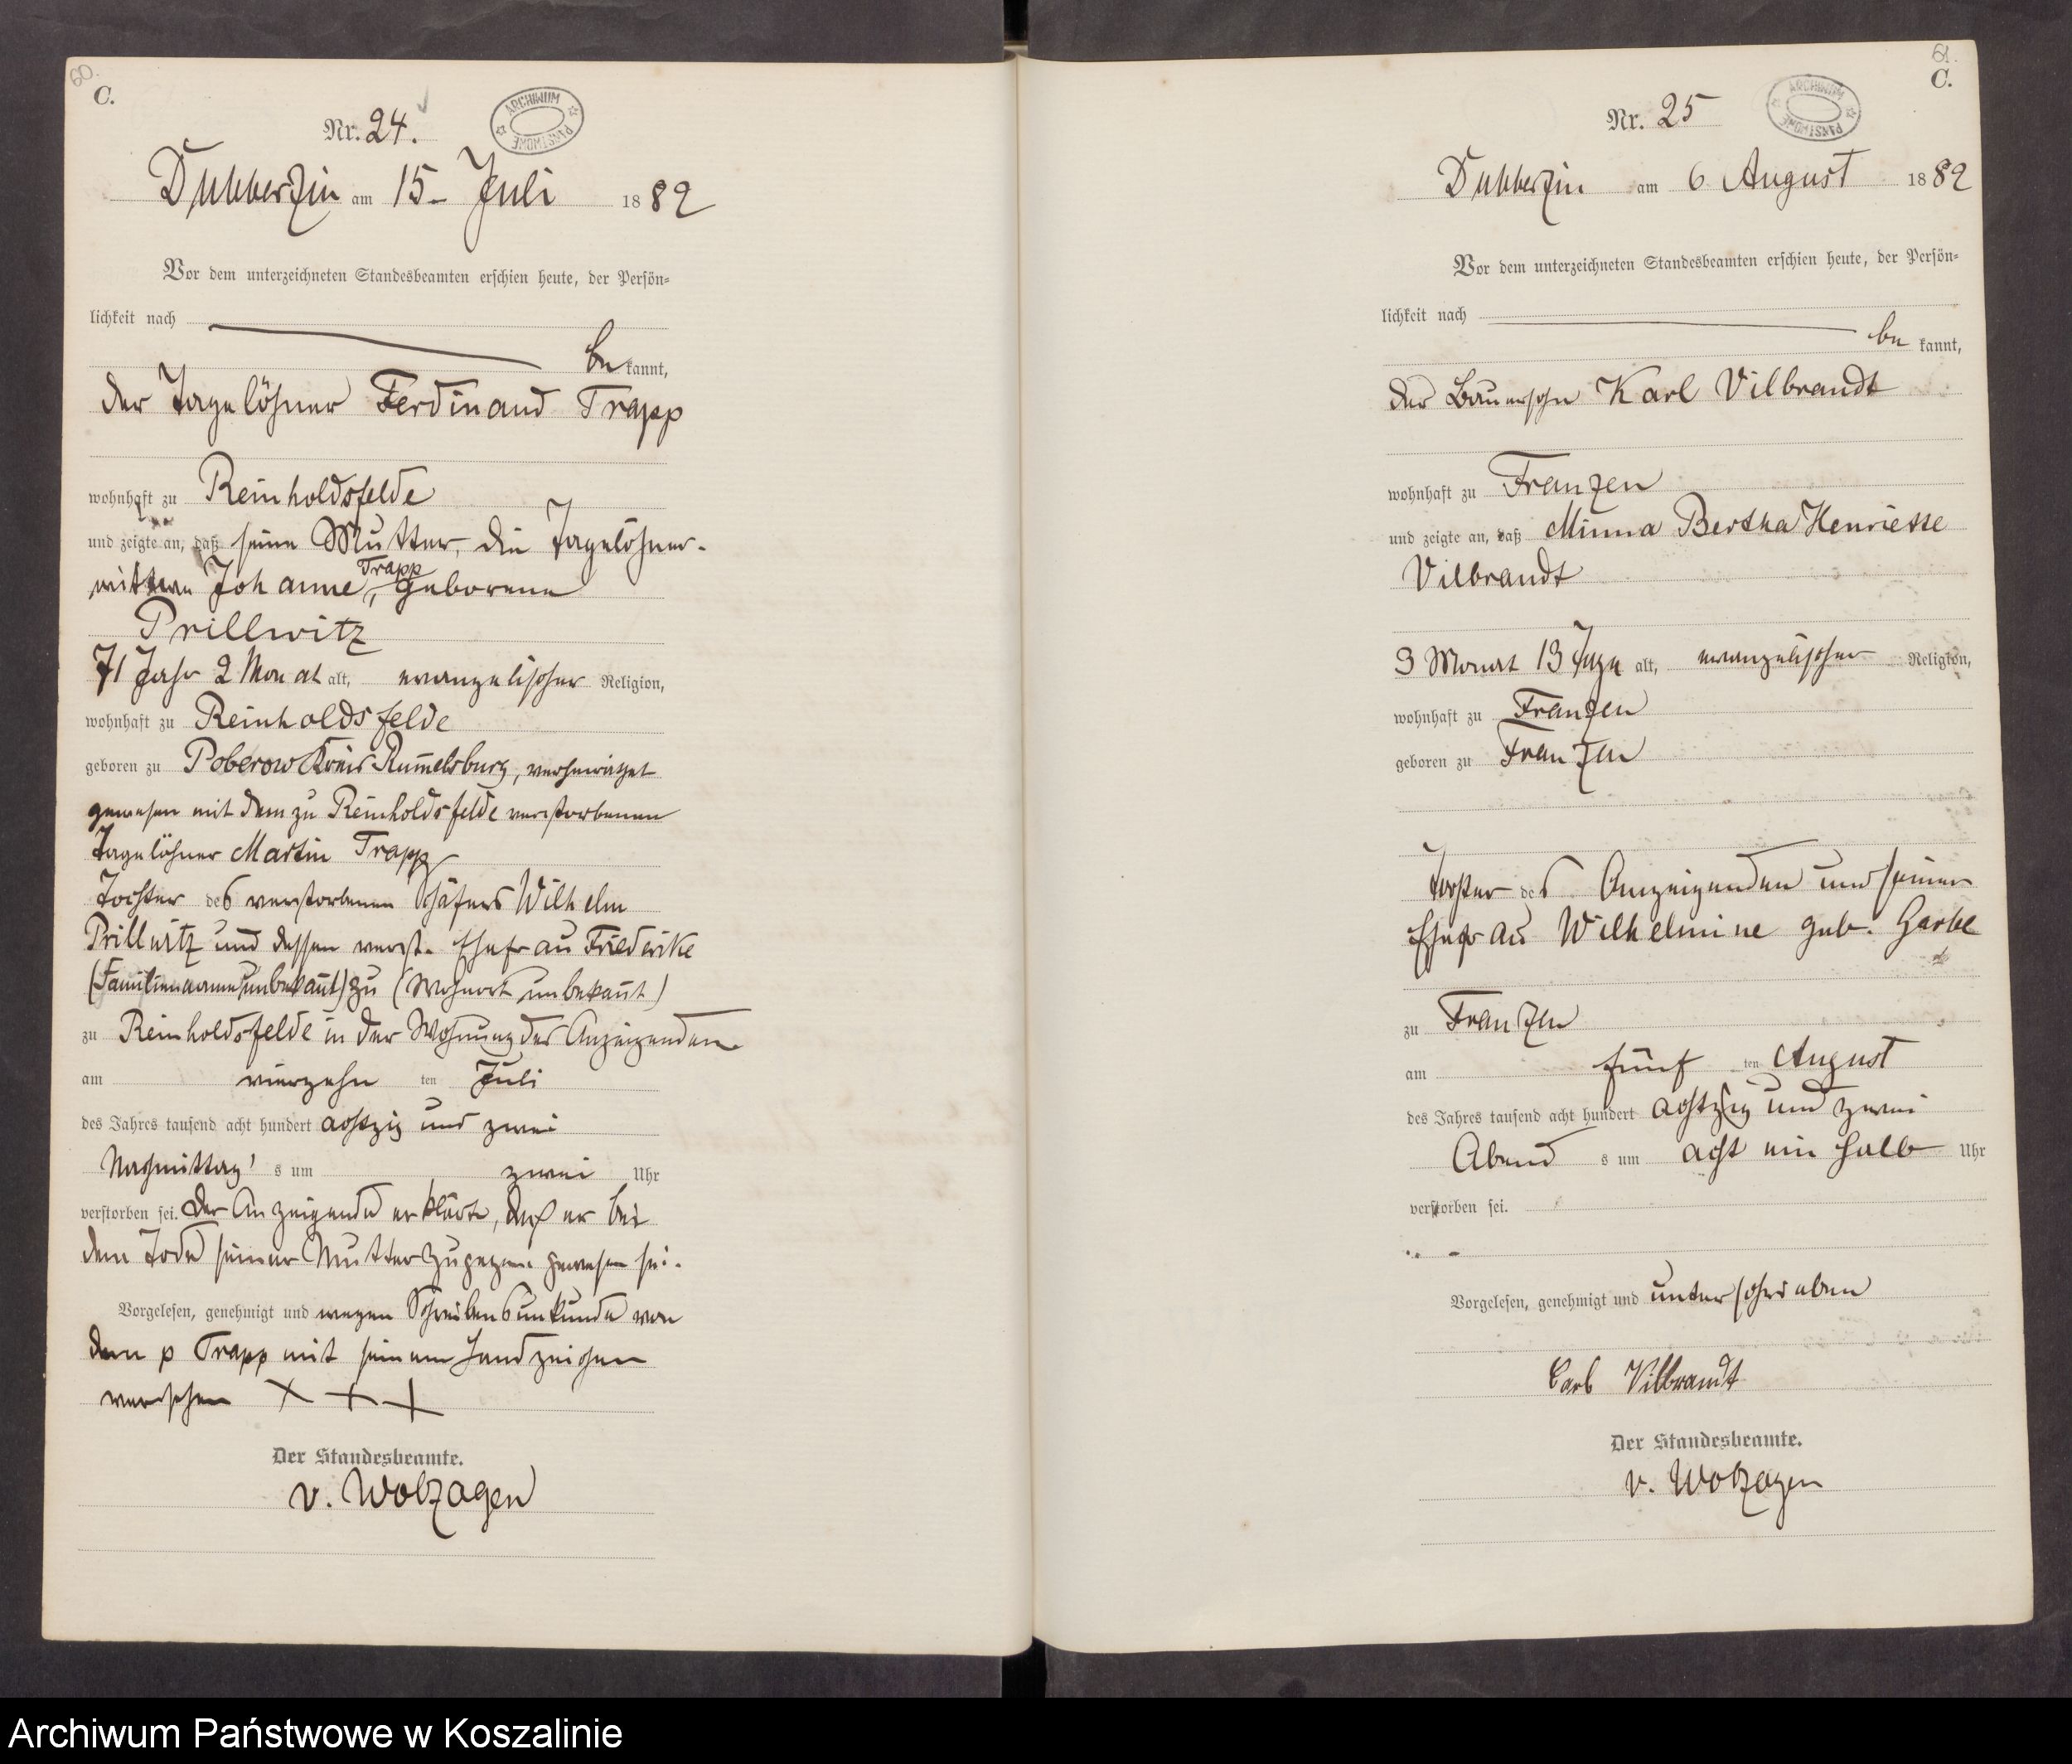 60.
C.
Nr. 24.
ARCHIWUM PAŃSTWOWE
Dubberzin am 15. Juli 1882
Vor dem unterzeichneten Standesbeamten erschien heute, der Persön-
lichkeit nach
be kannt,
der Tagelöhner Ferdinand Trapp
wohnhaft zu Reinholdsfelde
und zeigte an, daß seine Mutter, die Tagelöhner-
wittwe Johanne Trapp, geborene
Prillwitz
71 Jahr 2 Monat alt, evangelischer Religion,
wohnhaft zu Reinholdsfelde
geboren zu Poberow Kreis Rummelsburg, verheirathet
gewesen mit dem zu Reinholdsfelde verstorbenen
Tagelöhner Martin Trapp
Tochter des verstorbenen Schäfers Wilhelm
Prillwitz und dessen verst. Ehefrau Friederike
(Familienname unbekannt) zu (Wohnort unbekannt)
zu Reinholdsfelde in der Wohnung des Anzeigenden
am vierzehn ten Juli
des Jahres tausend acht hundert achtzig und zwei
Nachmittag s um zwei Uhr
verstorben sei. Der Anzeigende erklärte, daß er bei
dem Tode seiner Mutter zugegen gewesen sei.
Vorgelesen, genehmigt und wegen Schreibensunkunde von
dem p Trapp mit seinem Handzeichen
versehen X + +
Der Standesbeamte.
v. Wolzogen
61.
C.
Nr. 25
ARCHIWUM PAŃSTWOWE
Dubberzin am 6 August 1882
Vor dem unterzeichneten Standesbeamten erschien heute, der Persön-
lichkeit nach
be kannt,
der Bauersohn Karl Vilbrandt
wohnhaft zu Franzen
und zeigte an, daß Minna Bertha Henriette
Vilbrandt
3 Monat 13 Tage alt, evangelischer Religion,
wohnhaft zu Franzen
geboren zu Franzen
Tochter des Anzeigenden und seiner
Ehefrau Wilhelmine geb. Garbe
zu Franzen
am fünf ten August
des Jahres tausend acht hundert achtzig und zwei
Abend s um acht ein halb Uhr
verstorben sei.
Vorgelesen, genehmigt und unterschrieben
Carl Vilbrandt
Der Standesbeamte.
v. Wolzogen
Archiwum Państwowe w Koszalinie